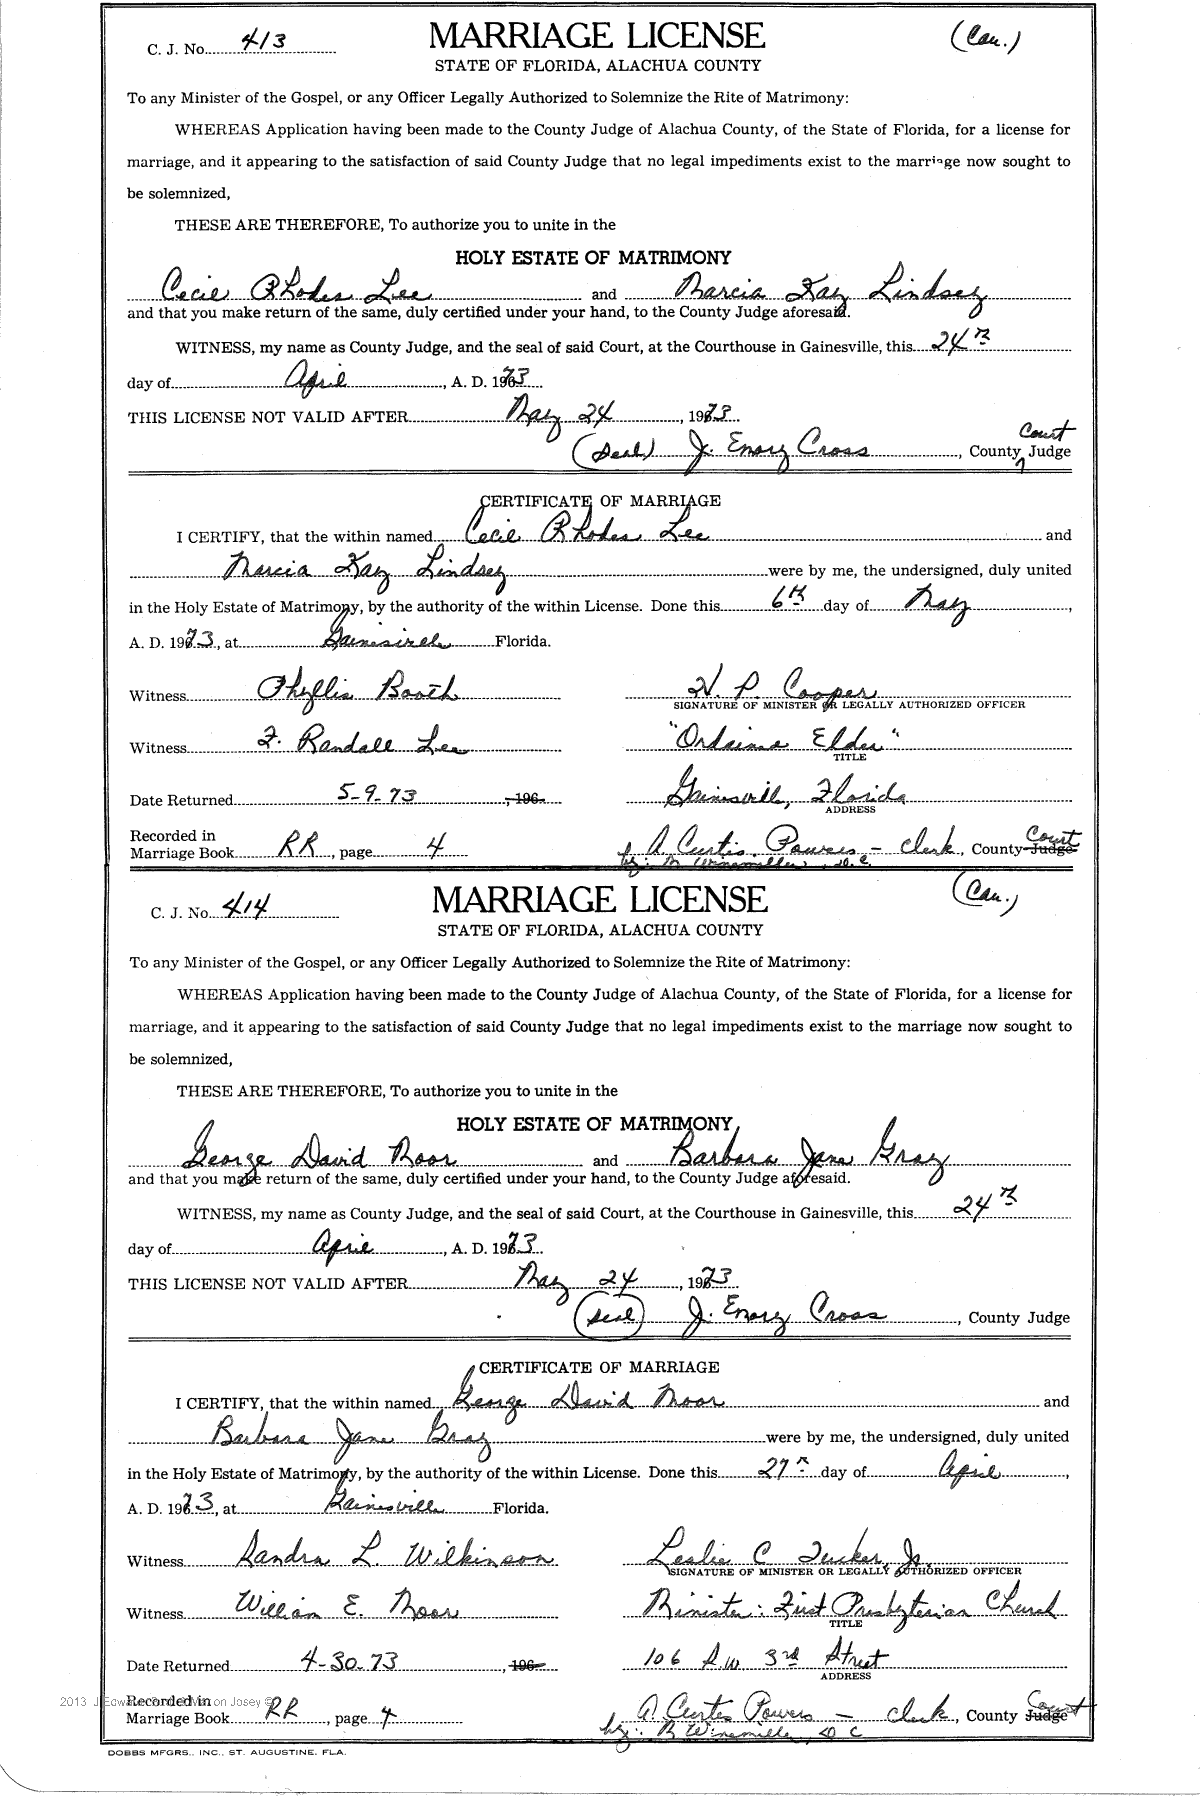 C. J. No. 413 MARRIAGE LICENSE (Cau.)
STATE OF FLORIDA, ALACHUA COUNTY
To any Minister of the Gospel, or any Officer Legally Authorized to Solemnize the Rite of Matrimony:
WHEREAS Application having been made to the County Judge of Alachua County, of the State of Florida, for a license for
marriage, and it appearing to the satisfaction of said County Judge that no legal impediments exist to the marriage now sought to
be solemnized,
THESE ARE THEREFORE, To authorize you to unite in the
HOLY ESTATE OF MATRIMONY
Cecil Rhodes Lee and Marcia Kay Lindsey
and that you make return of the same, duly certified under your hand, to the County Judge aforesaid.
WITNESS, my name as County Judge, and the seal of said Court, at the Courthouse in Gainesville, this 24th
day of April, A. D. 1973
THIS LICENSE NOT VALID AFTER May 24, 1973
(Seal) J. Emory Cross, County Court Judge
CERTIFICATE OF MARRIAGE
I CERTIFY, that the within named Cecil Rhodes Lee and
Marcia Kay Lindsey were by me, the undersigned, duly united
in the Holy Estate of Matrimony, by the authority of the within License. Done this 6th day of May,
A. D. 1973, at Gainesville Florida.
Witness Phyllis Booth H. P. Cooper
SIGNATURE OF MINISTER OR LEGALLY AUTHORIZED OFFICER
Witness F. Randall Lee "Ordained Elder"
TITLE
Date Returned 5-9-73, 196 Gainesville, Florida
ADDRESS
Recorded in
Marriage Book RR, page 4 A Curtis Powers - Clerk, County Judge Court
by: M Winsmiller, D.C.
C. J. No. 414 MARRIAGE LICENSE (Cau.)
STATE OF FLORIDA, ALACHUA COUNTY
To any Minister of the Gospel, or any Officer Legally Authorized to Solemnize the Rite of Matrimony:
WHEREAS Application having been made to the County Judge of Alachua County, of the State of Florida, for a license for
marriage, and it appearing to the satisfaction of said County Judge that no legal impediments exist to the marriage now sought to
be solemnized,
THESE ARE THEREFORE, To authorize you to unite in the
HOLY ESTATE OF MATRIMONY
George David Moor and Barbara Jane Gray
and that you make return of the same, duly certified under your hand, to the County Judge aforesaid.
WITNESS, my name as County Judge, and the seal of said Court, at the Courthouse in Gainesville, this 24th
day of April, A. D. 1973
THIS LICENSE NOT VALID AFTER May 24, 1973
(Seal) J. Emory Cross, County Judge
CERTIFICATE OF MARRIAGE
I CERTIFY, that the within named George David Moor and
Barbara Jane Gray were by me, the undersigned, duly united
in the Holy Estate of Matrimony, by the authority of the within License. Done this 27th day of April,
A. D. 1973, at Gainesville Florida.
Witness Sandra L. Wilkinson Leslie C Tucker, Jr.
SIGNATURE OF MINISTER OR LEGALLY AUTHORIZED OFFICER
Witness William E. Moor Minister: First Presbyterian Church
TITLE
Date Returned 4-30-73, 196 106 S.W 3rd Street
ADDRESS
Recorded in
Marriage Book RR, page 4 A Curtis Powers - Clerk, County Judge Court
by: M Winsmiller, D C
DOBBS MFGRS., INC., ST. AUGUSTINE, FLA.